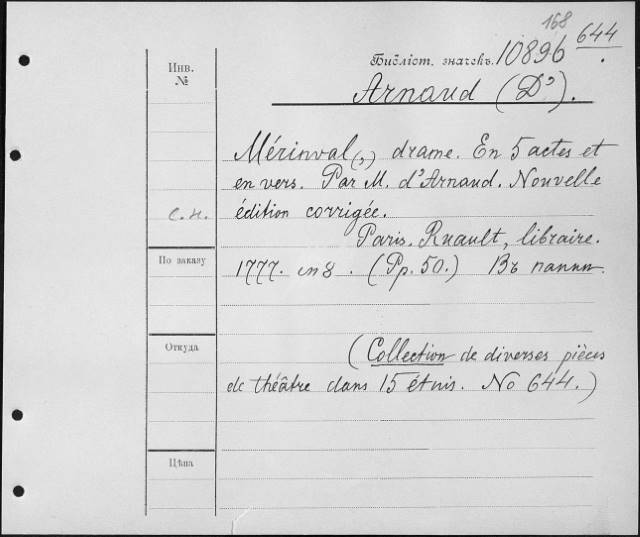 168
644
Инв. №
Библіот. значекъ. 10896
Arnaud (D').
Mérinval (,) drame. En 5 actes et
en vers. Par M. d'Arnaud. Nouvelle
с. н.
édition corrigée.
Paris. Ruault, libraire.
По заказу
1777. in 8. (Pp. 50.) Въ папкѣ.
Откуда
(Collection de diverses pièces
de théâtre dans 15 étuis. No 644.)
Цѣна